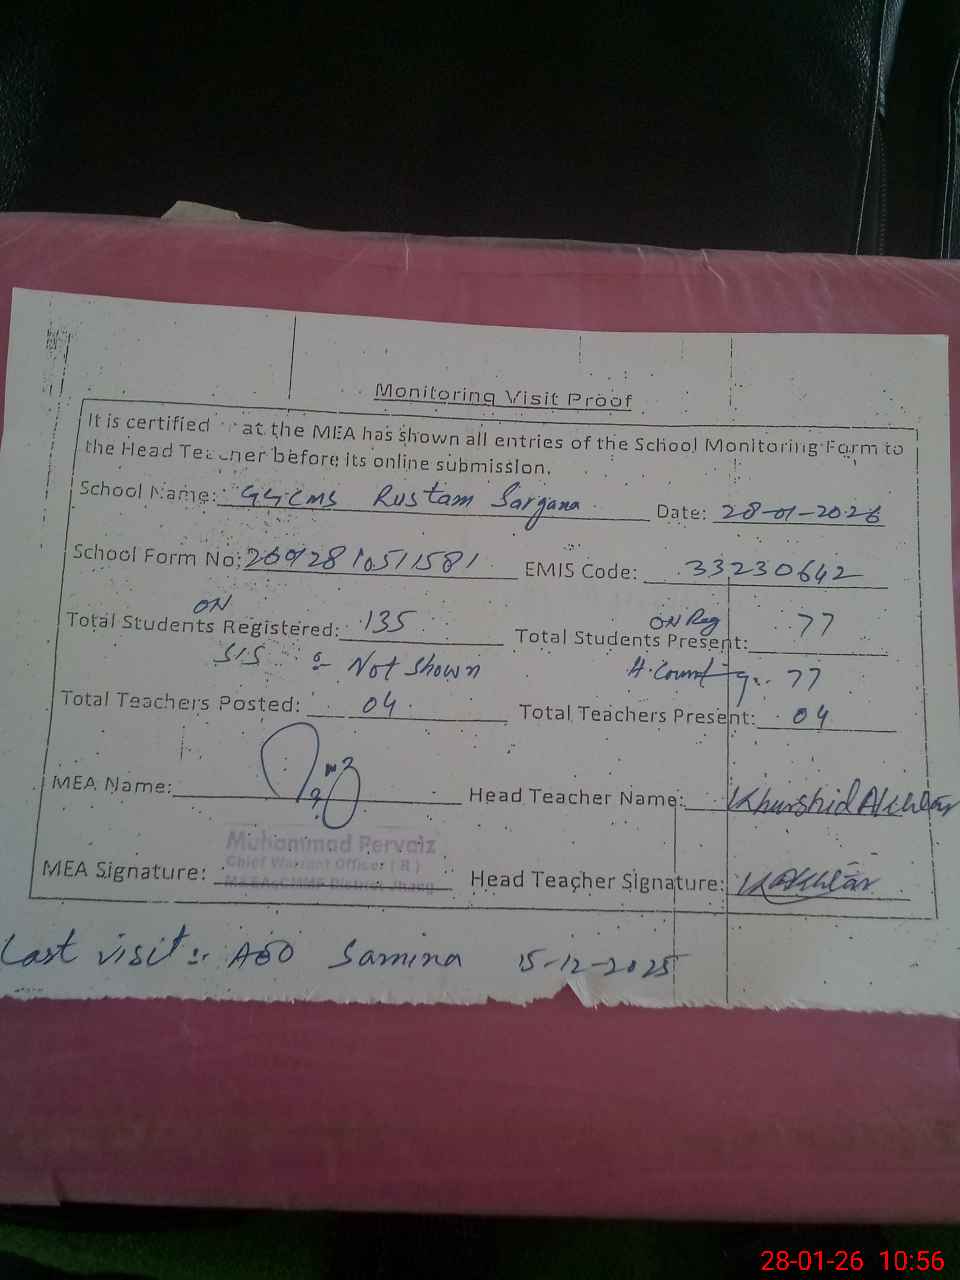 Monitoring Visit Proof
It is certified at the MEA has shown all entries of the School Monitoring Form to
the Head Teacher before its online submission.
School Name: GGCMS Rustam Sargana Date: 28-01-2026
School Form No: 26912810511581 EMIS Code: 33230642
ON ON Reg
Total Students Registered: 135 Total Students Present: 77
SIS Not Shown H.Count 77
Total Teachers Posted: 04 Total Teachers Present: 04
MEA Name: Head Teacher Name: Khurshid Akhtar
Muhammad Pervaiz
Chief Warrant Officer ( R )
MEA Signature: District Jhang Head Teacher Signature: K Akhtar
Last visit :- AEO Samina 15-12-2025
28-01-26 10:56